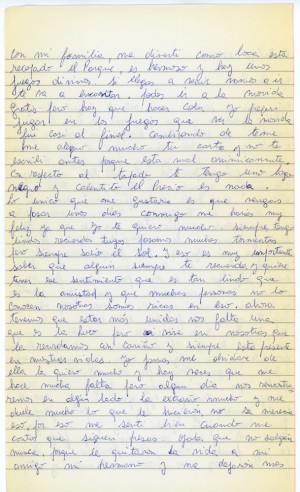 con mi familia, me divertí como loca está
el Parque, es hermoso y hay unos
juegos divinos si llegas a venir vamos
te va a encantar podes ir a la movida
gratis pero hay que hacer cola. Yo
jugar en los juegos que ver la movida
fui casi al final. Cambiando de tema
me alegro mucho tu carta y no te
escribi antes porque esta mal animicamente.
Con respecto al tapado te tengo uno
negro y calentito el precio es nada.
Lo unico que me gustaria es que vengas
a pasar unos dias conmigo me harias muy
feliz ya que yo te quiero mucho. Siempre tengo
lindos recuerdos tuyos pasamos muchas tormentas
pero siempre salio el sol. Y eso es muy importante
saber que alguien siempre te recuerda y quiere
tener ese sentimiento que es tan lindo que
es la amistad y que muchas personas no lo
conocen nosotros somos ricas y eso ahora
tenemos que estar más unidas nos falta una
que es la pero vive en nosotras que
la recordamos con cariño y siempre está presente
en nuestras vidas yo jamas me olvidare de
ella la quiero mucho y hay veces que me
hace mucha falta pero algun dia nos
en algún lado. La extraño mucho y me
duele mucho lo que le hicieron no se merecia
eso, por eso me senti bien cuando me
conto que siguen presos. Ojala que no salgan
nunca, porque le quitaron la vida a mi
amigo mi hermano y me dejaron mas